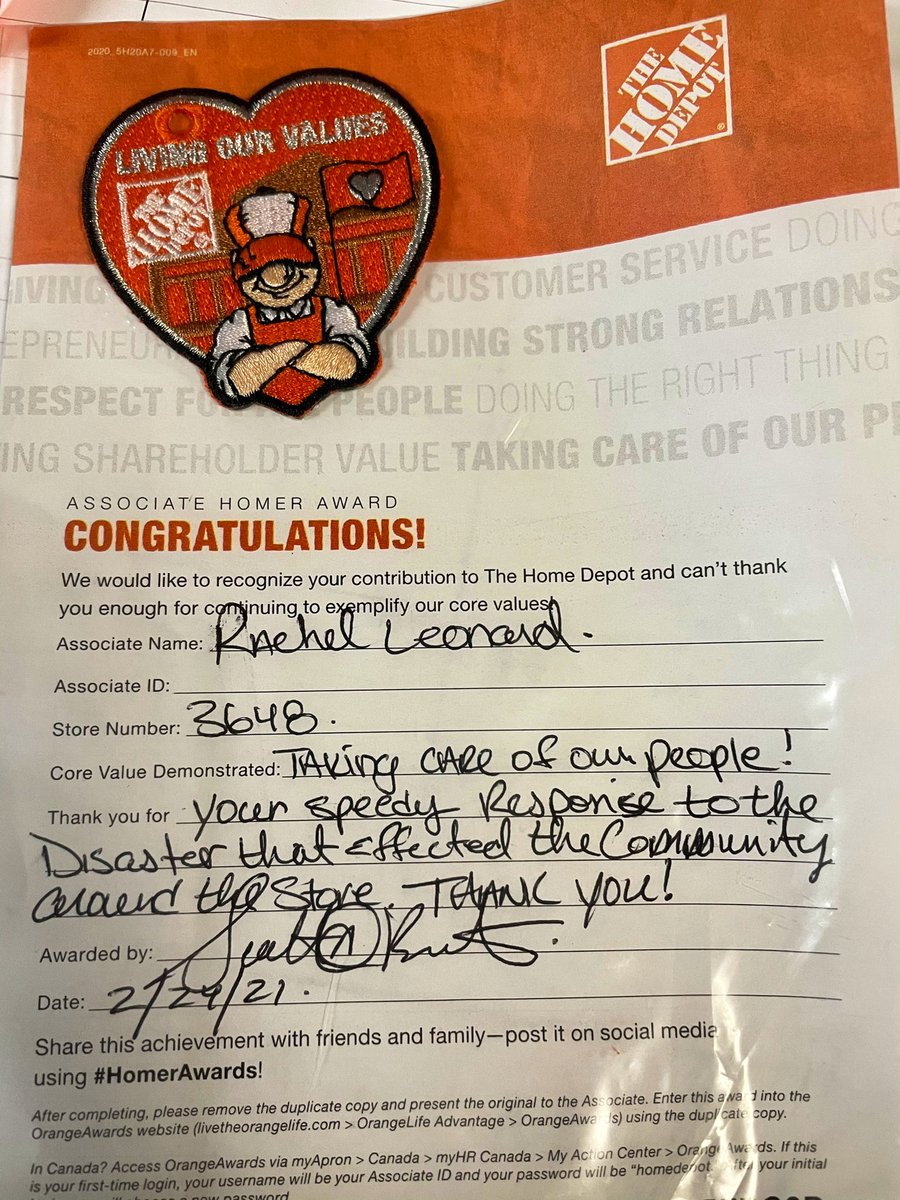 2020_5H20A7-009_EN
THE
HOME
DEPOT
LIVING OUR VALUES
THE
HOME
DEPOT
LIVING CUSTOMER SERVICE DOING
EPRENEUR ILDING STRONG RELATIONS
RESPECT FO PEOPLE DOING THE RIGHT THING
ING SHAREHOLDER VALUE TAKING CARE OF OUR PE
ASSOCIATE HOMER AWARD
CONGRATULATIONS!
We would like to recognize your contribution to The Home Depot and can't thank
you enough for continuing to exemplify our core values!
Associate Name: Rachel Leonard.
Associate ID:
Store Number: 3648.
Core Value Demonstrated: TAKing CARE of our people!
Thank you for your speedy Response to the
Disaster that effected the Community
around the Store. THANK YOU!
Awarded by:
Date: 2/24/21.
Share this achievement with friends and family—post it on social media
using #HomerAwards!
After completing, please remove the duplicate copy and present the original to the Associate. Enter this award into the
OrangeAwards website (livetheorangelife.com > OrangeLife Advantage > OrangeAwards) using the duplicate copy.
In Canada? Access OrangeAwards via myApron > Canada > myHR Canada > My Action Center > OrangeAwards. If this
is your first-time login, your username will be your Associate ID and your password will be "homedepot." After your initial
a new password